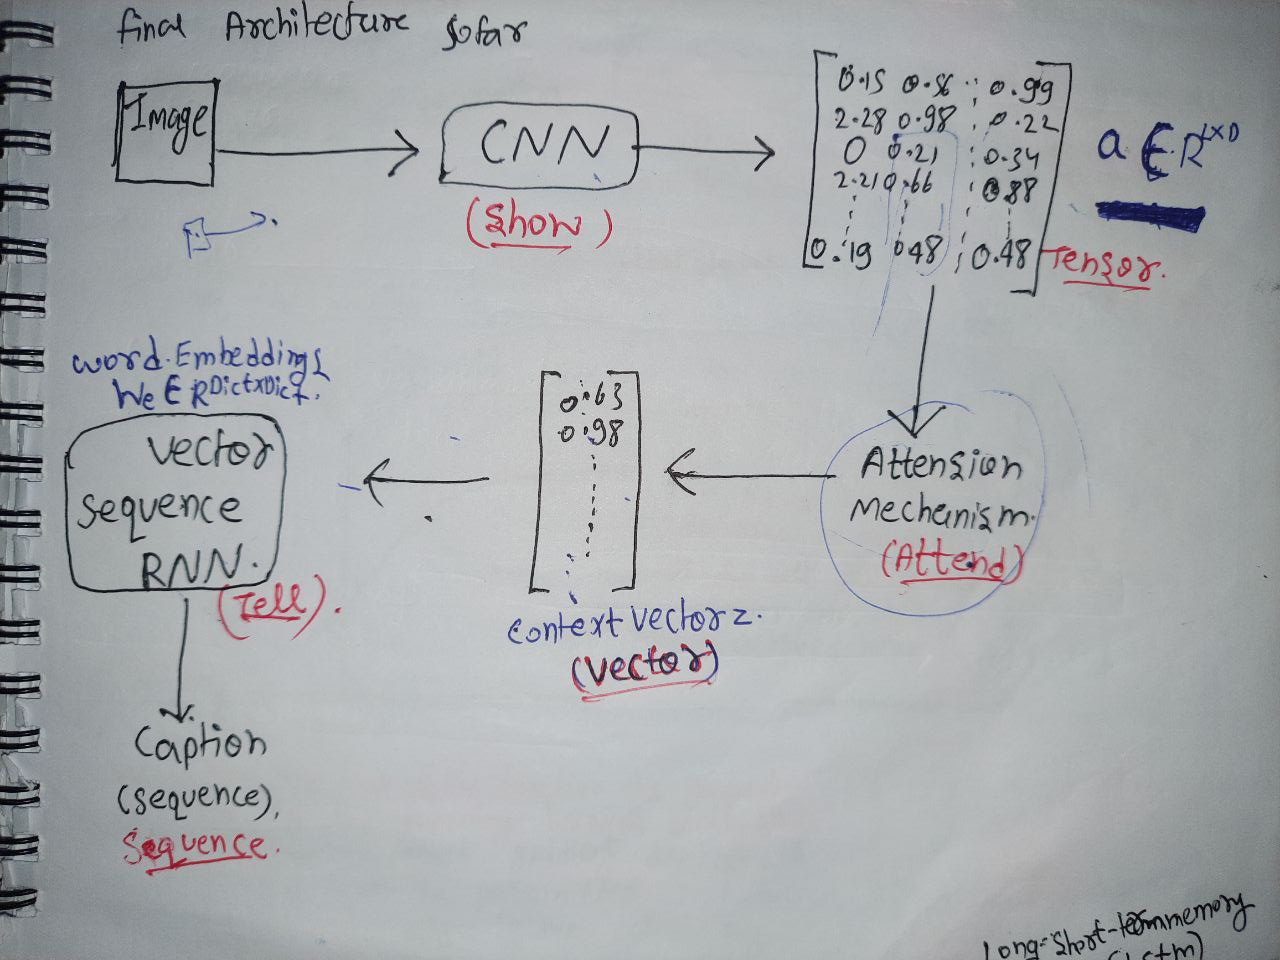 final Architecture sofar
Image
CNN
(Show)
0.15 0.56 : 0.99
2.28 0.98 : 0.22
0 0.21 : 0.34
2.21 0.66 0.88
0.19 0.48 : 0.48
a ∈ R^LXD
Tensor.
Attension
Mechanism.
(Attend)
0.63
0.98
context vector z.
(vector)
word.Embeddings
We ∈ R^Dict×Dict.
vector
sequence
RNN.
(Tell).
Caption
(sequence),
Sequence.
Long-Short-term memory
(Lstm)